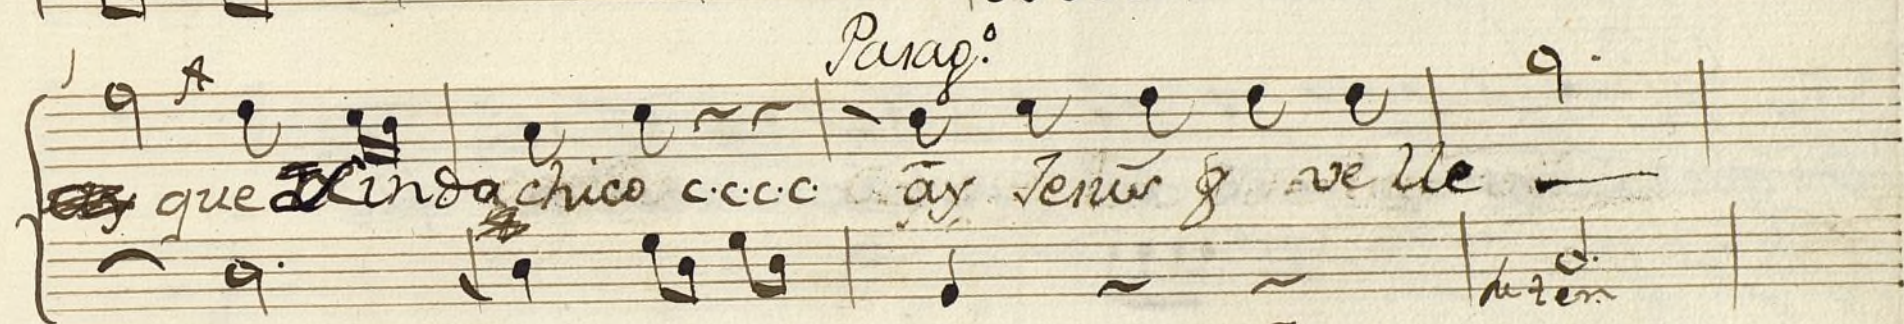 Parag.º
A
que linda chico c.c.c.c. ay Jesus q velle